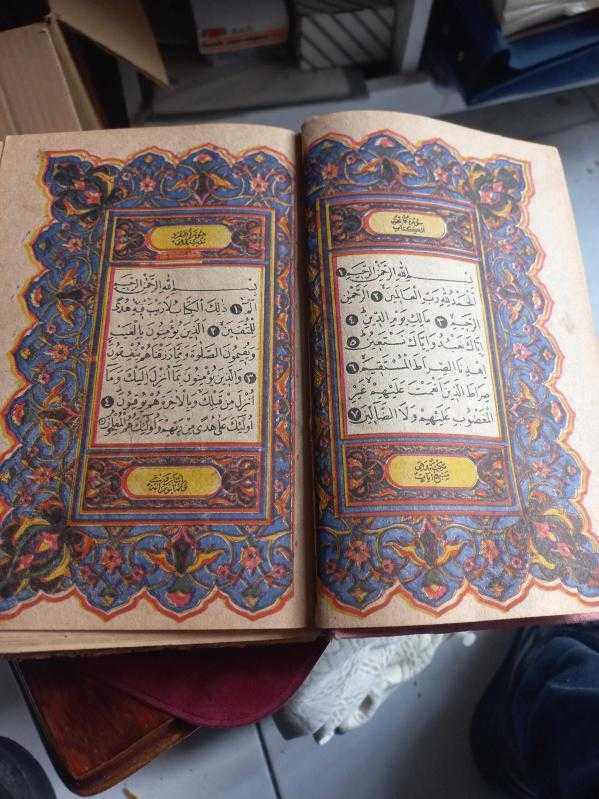 سورة فاتحة
الكتاب
بسم الله الرحمن الرحيم ١
الحمد لله رب العالمين ٢ الرحمن
الرحيم ٣ مالك يوم الدين ٤
إياك نعبد وإياك نستعين ٥
اهدنا الصراط المستقيم ٦
صراط الذين أنعمت عليهم غير
المغضوب عليهم ولا الضالين ٧
بسم الله الرحمن الرحيم
الم ١ ذلك الكتاب لا ريب فيه هدى
للمتقين ٢ الذين يؤمنون بالغيب
ويقيمون الصلوة ومما رزقناهم ينفقون
٣ والذين يؤمنون بما أنزل إليك وما
أنزل من قبلك وبالآخرة هم يوقنون ٤
أولئك على هدى من ربهم وأولئك هم المفلحون